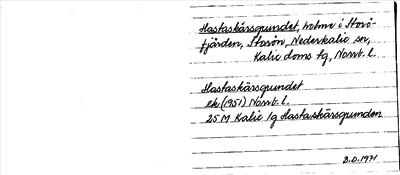 Hastaskärsgrundet, holme i Storö-
fjärden, Storön, Nederkalix sn,
Kalix doms tg, Norrb. l.
Hastaskärsgrundet
ek (1951) Norrb. l.
25 M Kalix /g Hastaskärsgrunden
B.O. 1971